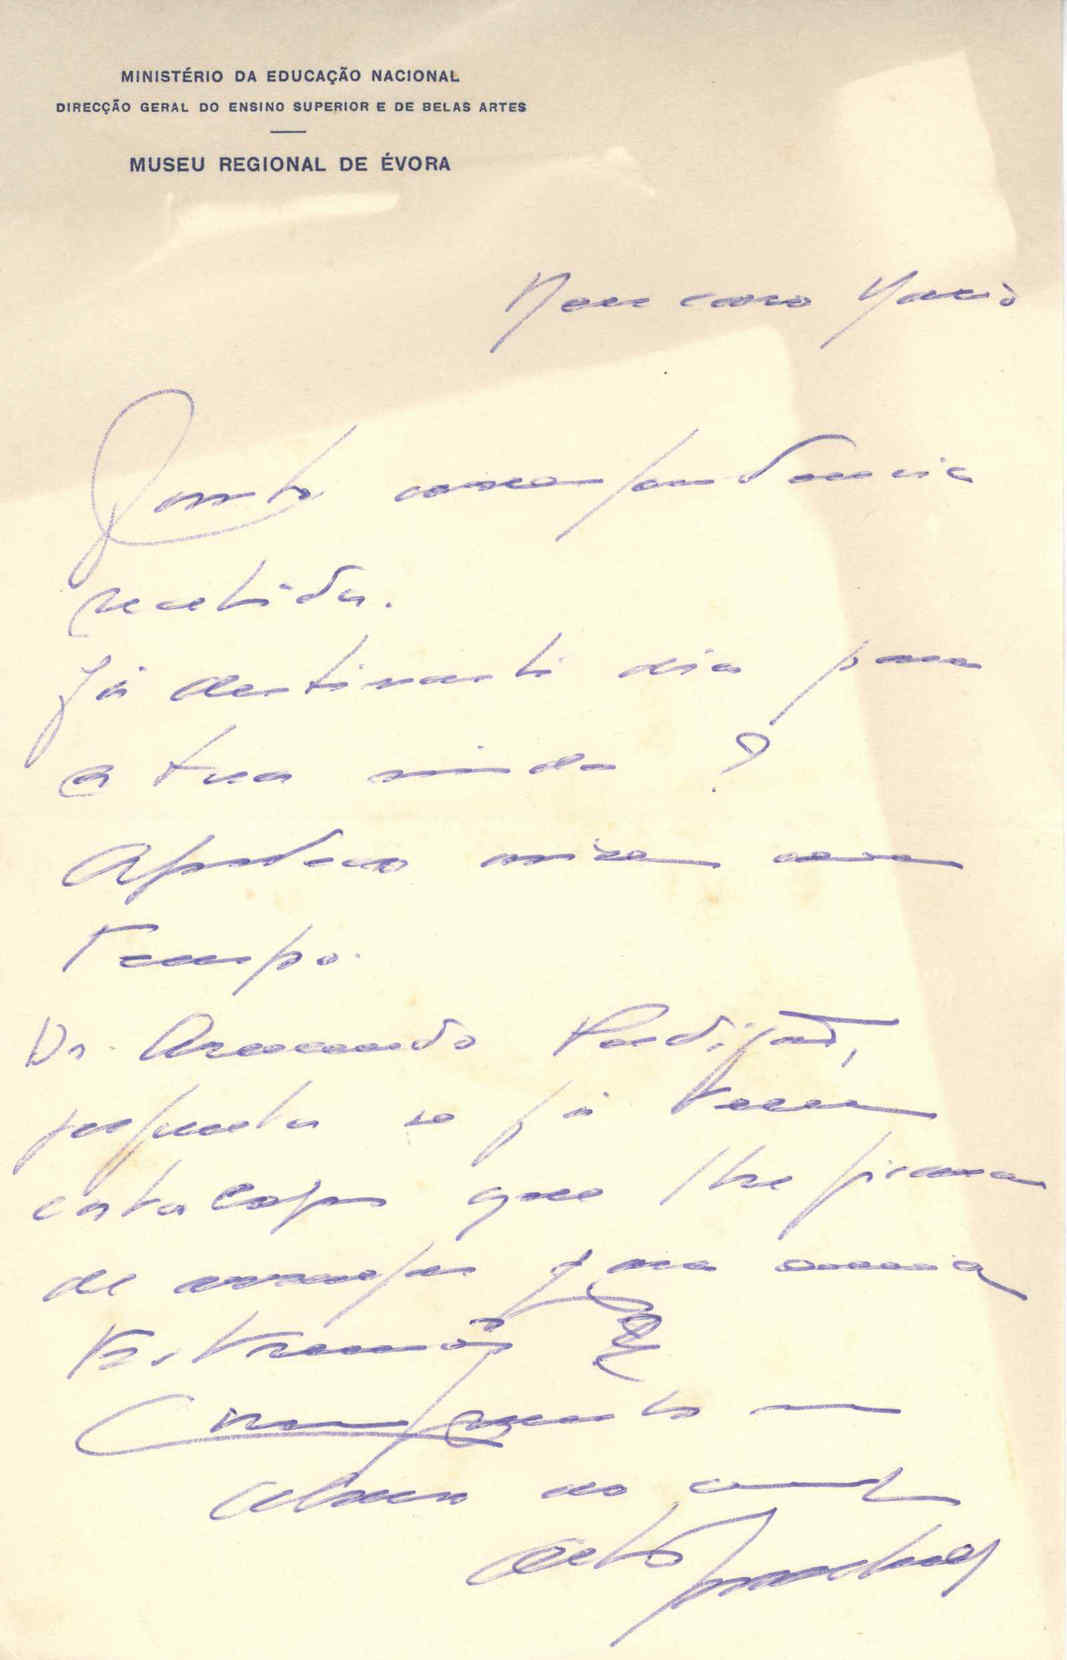 MINISTÉRIO DA EDUCAÇÃO NACIONAL
DIRECÇÃO GERAL DO ENSINO SUPERIOR E DE BELAS ARTES
MUSEU REGIONAL DE ÉVORA
Meu caro Mário
Junto correspondencia
recebida.
Já destinaste dia para
a tua vinda?
Agradeço avisem com
tempo.
Dr. Armando Perdigão,
pergunta se já tens
catalogo que lhe
de para
Estremoz?
Cumprimentos
abraço do